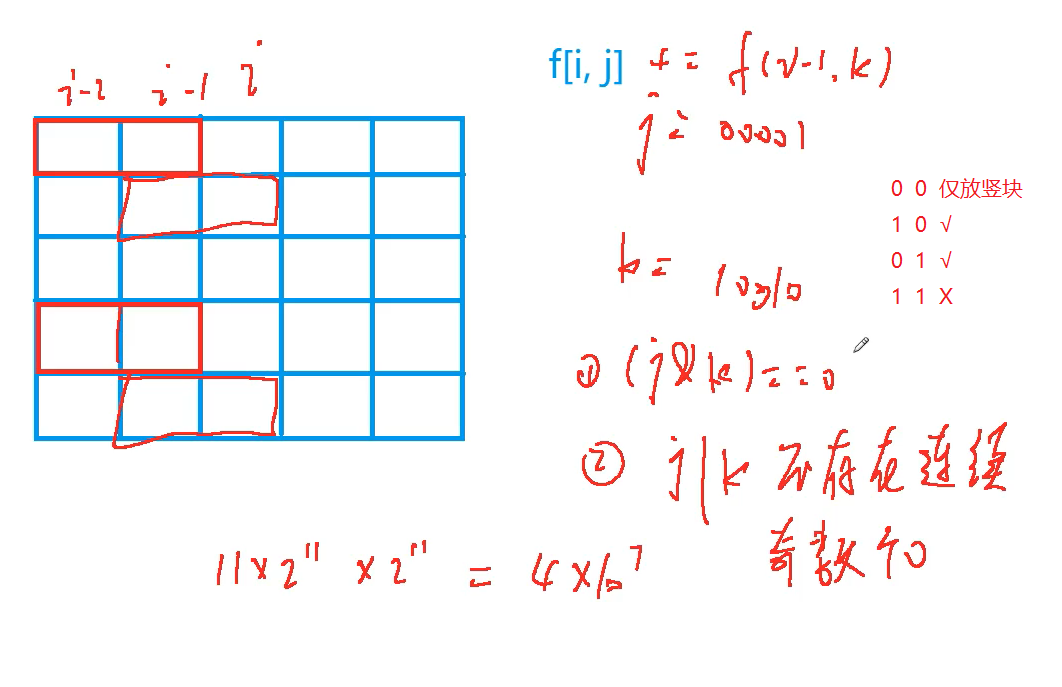 i-2 i-1 i
f[i, j] += f(i-1, k)
j = 00001
0 0 仅放竖块
1 0 √
0 1 √
1 1 X
k = 10010
① (j&k)==0
② j|k 不存在连续
奇数个0
11×2^11 × 2^11 = 4×10^7